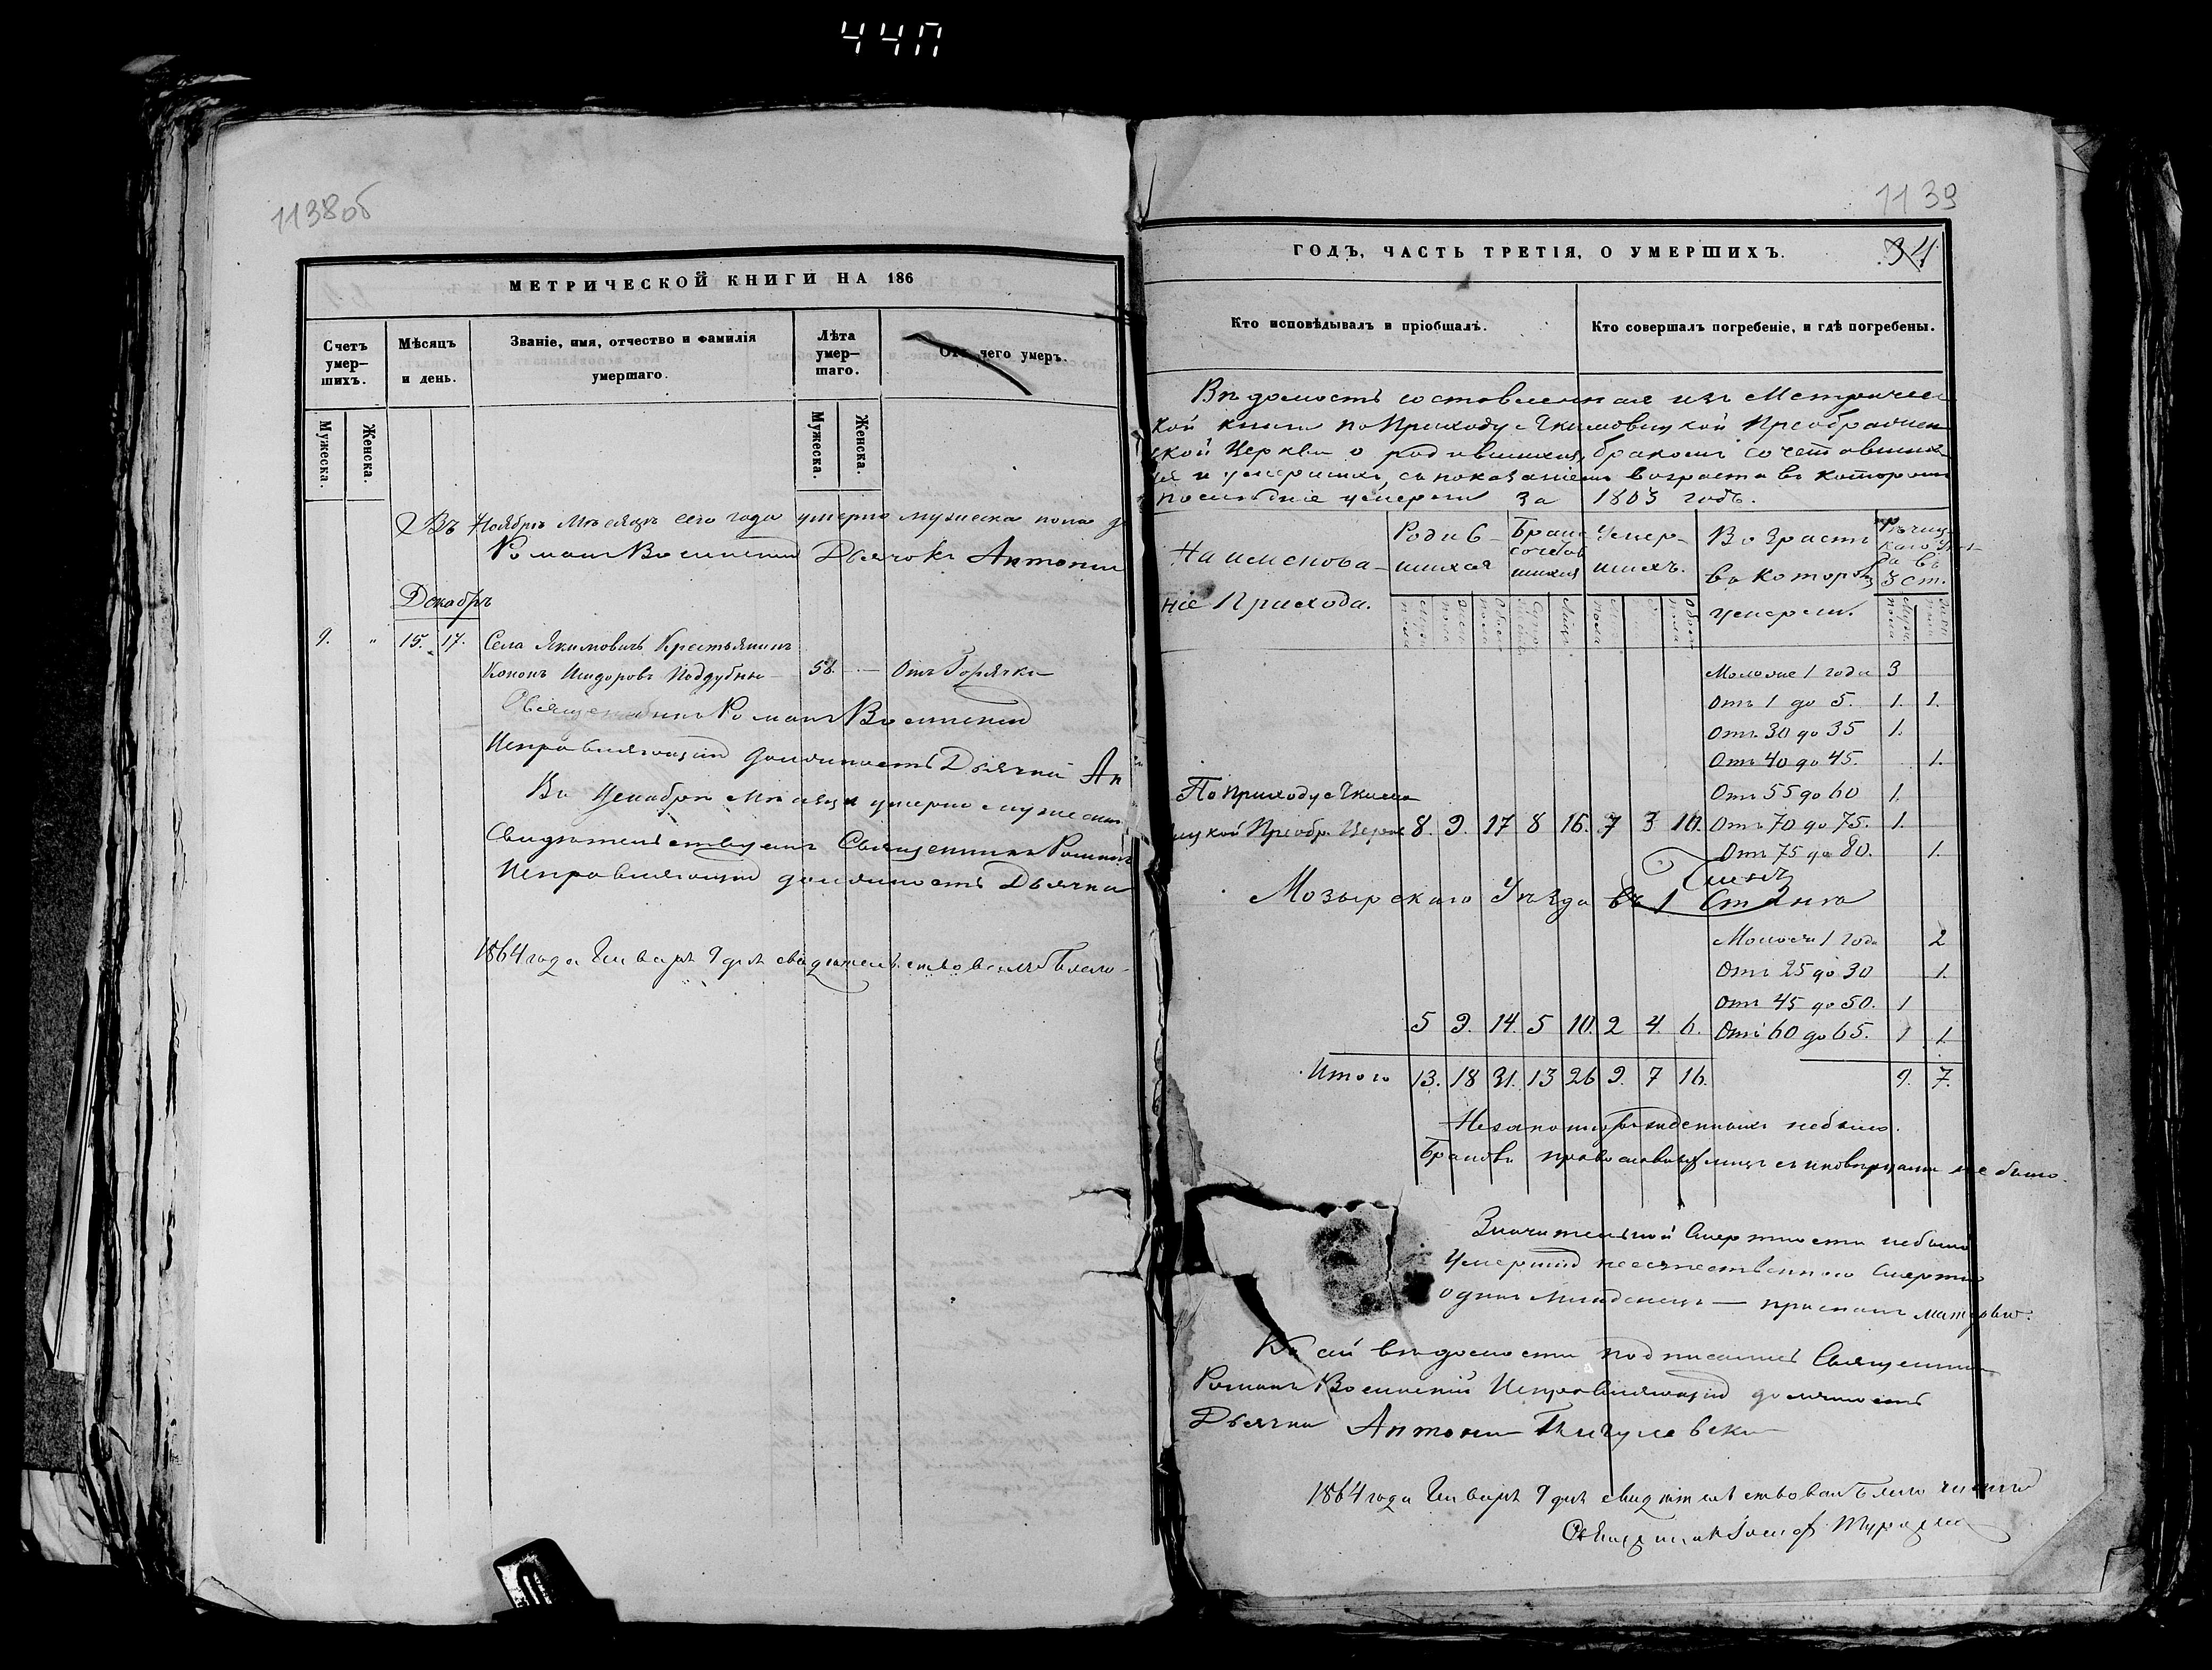 44П
1138об
МЕТРИЧЕСКОЙ КНИГИ НА 186
Счетъ умер-шихъ.
Мѣсяцъ и день.
Званіе, имя, отчество и фамилія умершаго.
Лѣта умер-шаго.
Отъ чего умеръ.
Мужеска.
Женска.
Мужеска.
Женска.
Въ Ноябрѣ Мѣсяцѣ сего года умерло мужеска пола
Романъ Дьячокъ Антоній
Декабрь
9. " 15. 17. Села Якимовичъ Крестьянинъ
Кононъ Исидоровъ Поддубный 58. — Отъ Горячки
Священникъ Романъ
Исправляющій должность Дьячка Ан
Въ Декабрѣ Мѣсяцѣ умерло мужеска
Свидѣтельствуемъ Священникъ Романъ
Исправляющій должность Дьячка
1864 года Января 9 дня свидѣтельствовалъ Благо-
1139
ГОДЪ, ЧАСТЬ ТРЕТІЯ, О УМЕРШИХЪ.
34
Кто исповѣдывалъ и пріобщалъ.
Кто совершалъ погребеніе, и гдѣ погребены.
Вѣдомость составленная изъ Метричес
кой книги по Приходу Якимовицкой Преображен
ской Церкви о родившихся, бракомъ сочетавших
ся и умершихъ, съ показаніемъ возраста въ которомъ
послѣдніе умерли за 1863 годъ.
Наименова-
ніе Прихода.
Родив-
шихся
Брако
сочетав
шихся
Умер-
шихъ.
Возрасть
въ которомъ
умерли.
Рѣчиц
каго Уѣз-
да въ
3 ст.
Моложе 1 года 3
Отъ 1 до 5. 1. 1.
Отъ 30 до 35 1.
Отъ 40 до 45. 1.
Отъ 55 до 60 1.
По приходу Якимо
вицкой Преобр. Церкв 8. 9. 17 8 16. 7 3 10. Отъ 70 до 75. 1.
Отъ 75 до 80. 1.
Мозырскаго Уѣзда въ 1 Станѣ
Моложе 1 года 2
Отъ 25 до 30 1.
Отъ 45 до 50. 1
5 9. 14. 5 10. 2 4. 6. Отъ 60 до 65. 1 1.
Итого 13. 18 31. 13 26 9. 7 16. 9. 7.
небыло.
Браковъ православныхъ лицъ съ иновѣрцами не было.
Значительной Смертности небыло
Умершій неестественною Смертію
одинъ Младенецъ — приспанъ матерью.
Къ сей вѣдомости подписались Священникъ
Романъ Исправляющій должность
Дьячка Антоній
1864 года Января 9 дня свидѣтельствовалъ Благочинный
Священникъ Іосифъ